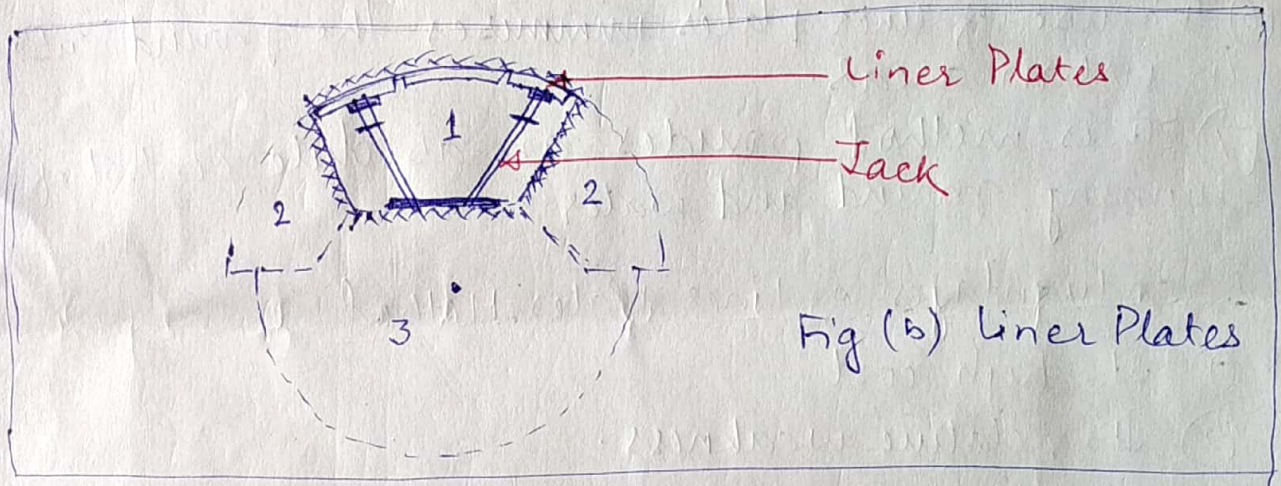 Liner Plates
1
Jack
2
2
3
Fig (b) Liner Plates